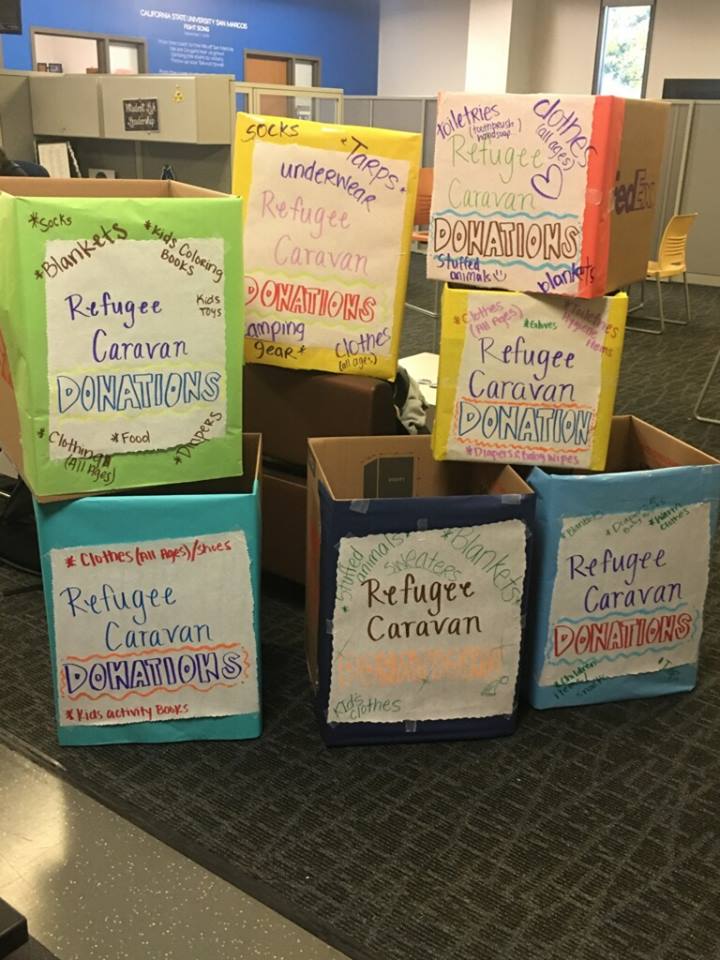 CALIFORNIA STATE UNIVERSITY SAN MARCOS
FIGHT SONG
Student Life
Leadership
SOCKS
*Tarps*
underwear
Refugee
Caravan
DONATIONS
camping
gear*
clothes
(all ages)
toiletries
(toothbrush
hand soap)
clothes
(all ages)
Refugee
Caravan
DONATIONS
Stuffed
animals
blankets
FedEx
*Socks
*Blankets
*Kids Coloring
Books
Kids
Toys
Refugee
Caravan
DONATIONS
*Clothing
(All Ages)
*Food
*Diapers
*Clothes
(All Ages)
*Gloves
Hygiene
Items
Refugee
Caravan
DONATION
*Diapers & Baby Wipes
*Clothes (All Ages)/shoes
Refugee
Caravan
DONATIONS
*Kids activity Books
*Stuffed
animals
*Blankets
sweaters
Refugee
Caravan
DONATIONS
Kid's
clothes
*Warm
clothes
Refugee
Caravan
DONATIONS
*Children